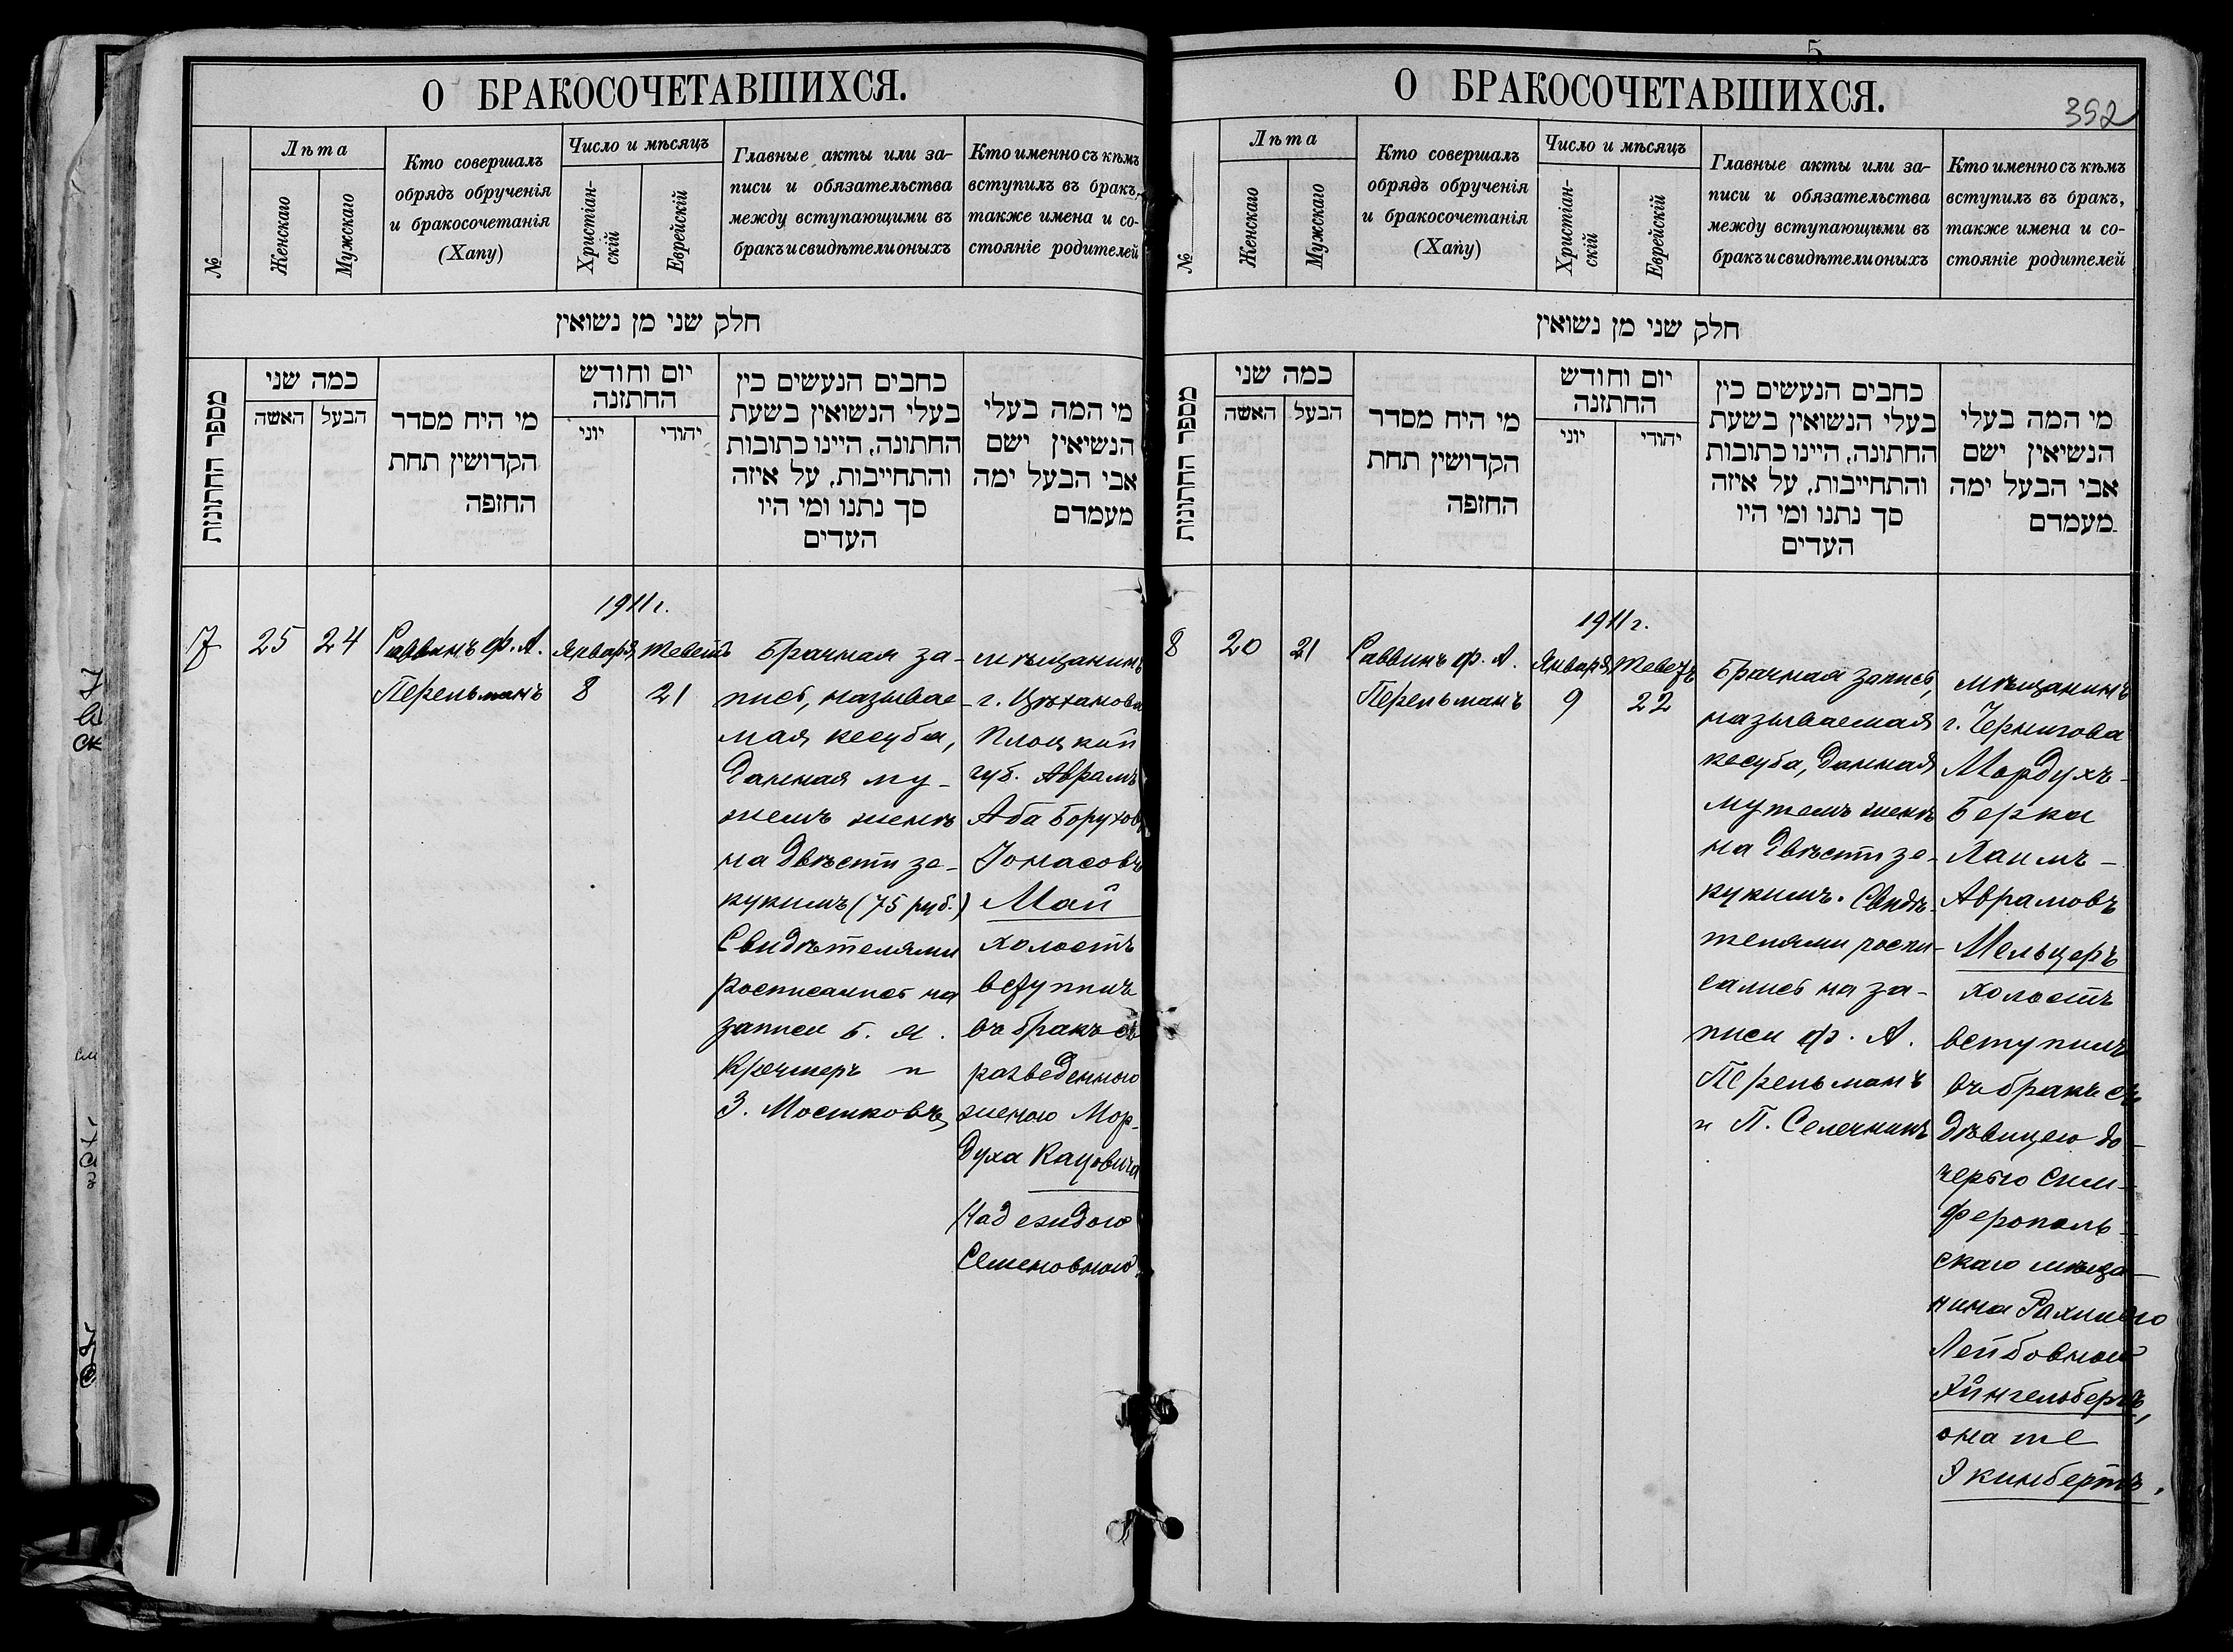 О БРАКОСОЧЕТАВШИХСЯ.
№
Лѣта
Женскаго
Мужскаго
Кто совершалъ
обрядъ обрученія
и бракосочетанія
(Хапу)
Число и мѣсяцъ
Христіан-
скій
Еврейскій
Главные акты или за-
писи и обязательства
между вступающими въ
бракъ и свидѣтели оныхъ
Кто именно съ кѣмъ
вступилъ въ бракъ,
также имена и со-
стояніе родителей
חלק שני מן נשואין
מספר החתונות
כמה שני
האשה
הבעל
מי היח מסדר
הקדושין תחת
החזפה
יום וחודש
החתזנה
יוני
יהודי
כחבים הנעשים כין
בעלי הנשואין בשעת
החתונה, היינו כתובות
והתחייבות, על איזה
סך נתנו ומי היו
העדים
מי המה בעלי
הנשיאין ישם
אבי הבעל ימה
מעמדם
7
25
24
Раввинъ Ф. А.
Перельманъ
1911 г.
Января
8
Теветъ
21
Брачная за-
пись, называе-
мая кесуба,
данная му-
жемъ женѣ
на двѣсти зе-
кукимъ (75 руб.)
Свидѣтелями
росписались на
записи Б. Я.
Кремеръ и
З. Мостковъ
мѣщанинъ
г. Цѣханова
Плоцкой
губ. Аврамъ
Аба Борухов
Іонасовъ
Май
холостъ
вступилъ
въ бракъ съ
разведенною
женою Мор-
духа Кацовича
Надеждою
Семеновною.
5
352
О БРАКОСОЧЕТАВШИХСЯ.
№
Лѣта
Женскаго
Мужскаго
Кто совершалъ
обрядъ обрученія
и бракосочетанія
(Хапу)
Число и мѣсяцъ
Христіан-
скій
Еврейскій
Главные акты или за-
писи и обязательства
между вступающими въ
бракъ и свидѣтели оныхъ
Кто именно съ кѣмъ
вступилъ въ бракъ,
также имена и со-
стояніе родителей
חלק שני מן נשואין
מספר החתונות
כמה שני
האשה
הבעל
מי היח מסדר
הקדושין תחת
החזפה
יום וחודש
החתזנה
יוני
יהודי
כחבים הנעשים כין
בעלי הנשואין בשעת
החתונה, היינו כתובות
והתחייבות, על איזה
סך נתנו ומי היו
העדים
מי המה בעלי
הנשיאין ישם
אבי הבעל ימה
מעמדם
8
20
21
Раввинъ Ф. А.
Перельманъ
1911 г.
Января
9
Теветъ
22
Брачная запись,
называемая
кесуба, данная
мужемъ женѣ
на двѣсти зе-
кукимъ. Свидѣ-
телями роспи-
сались на за-
писи Ф. А.
Перельманъ
и П. Селечникъ
мѣщанинъ
г. Чернигова
Мордухъ-
Берка
Хаимъ-
Аврамовъ
Мельцеръ
холостъ
вступилъ
въ бракъ съ
дѣвицею до-
черью Сим-
ферополь-
скаго мѣща-
нина Рахилью
Лейбовной
Эйнгельбертъ,
она же
Экинбертъ.